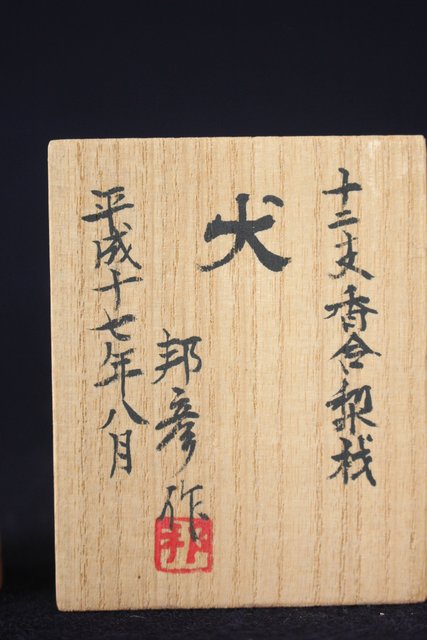 十二支香合
犬
邦彦作
平成十七年八月